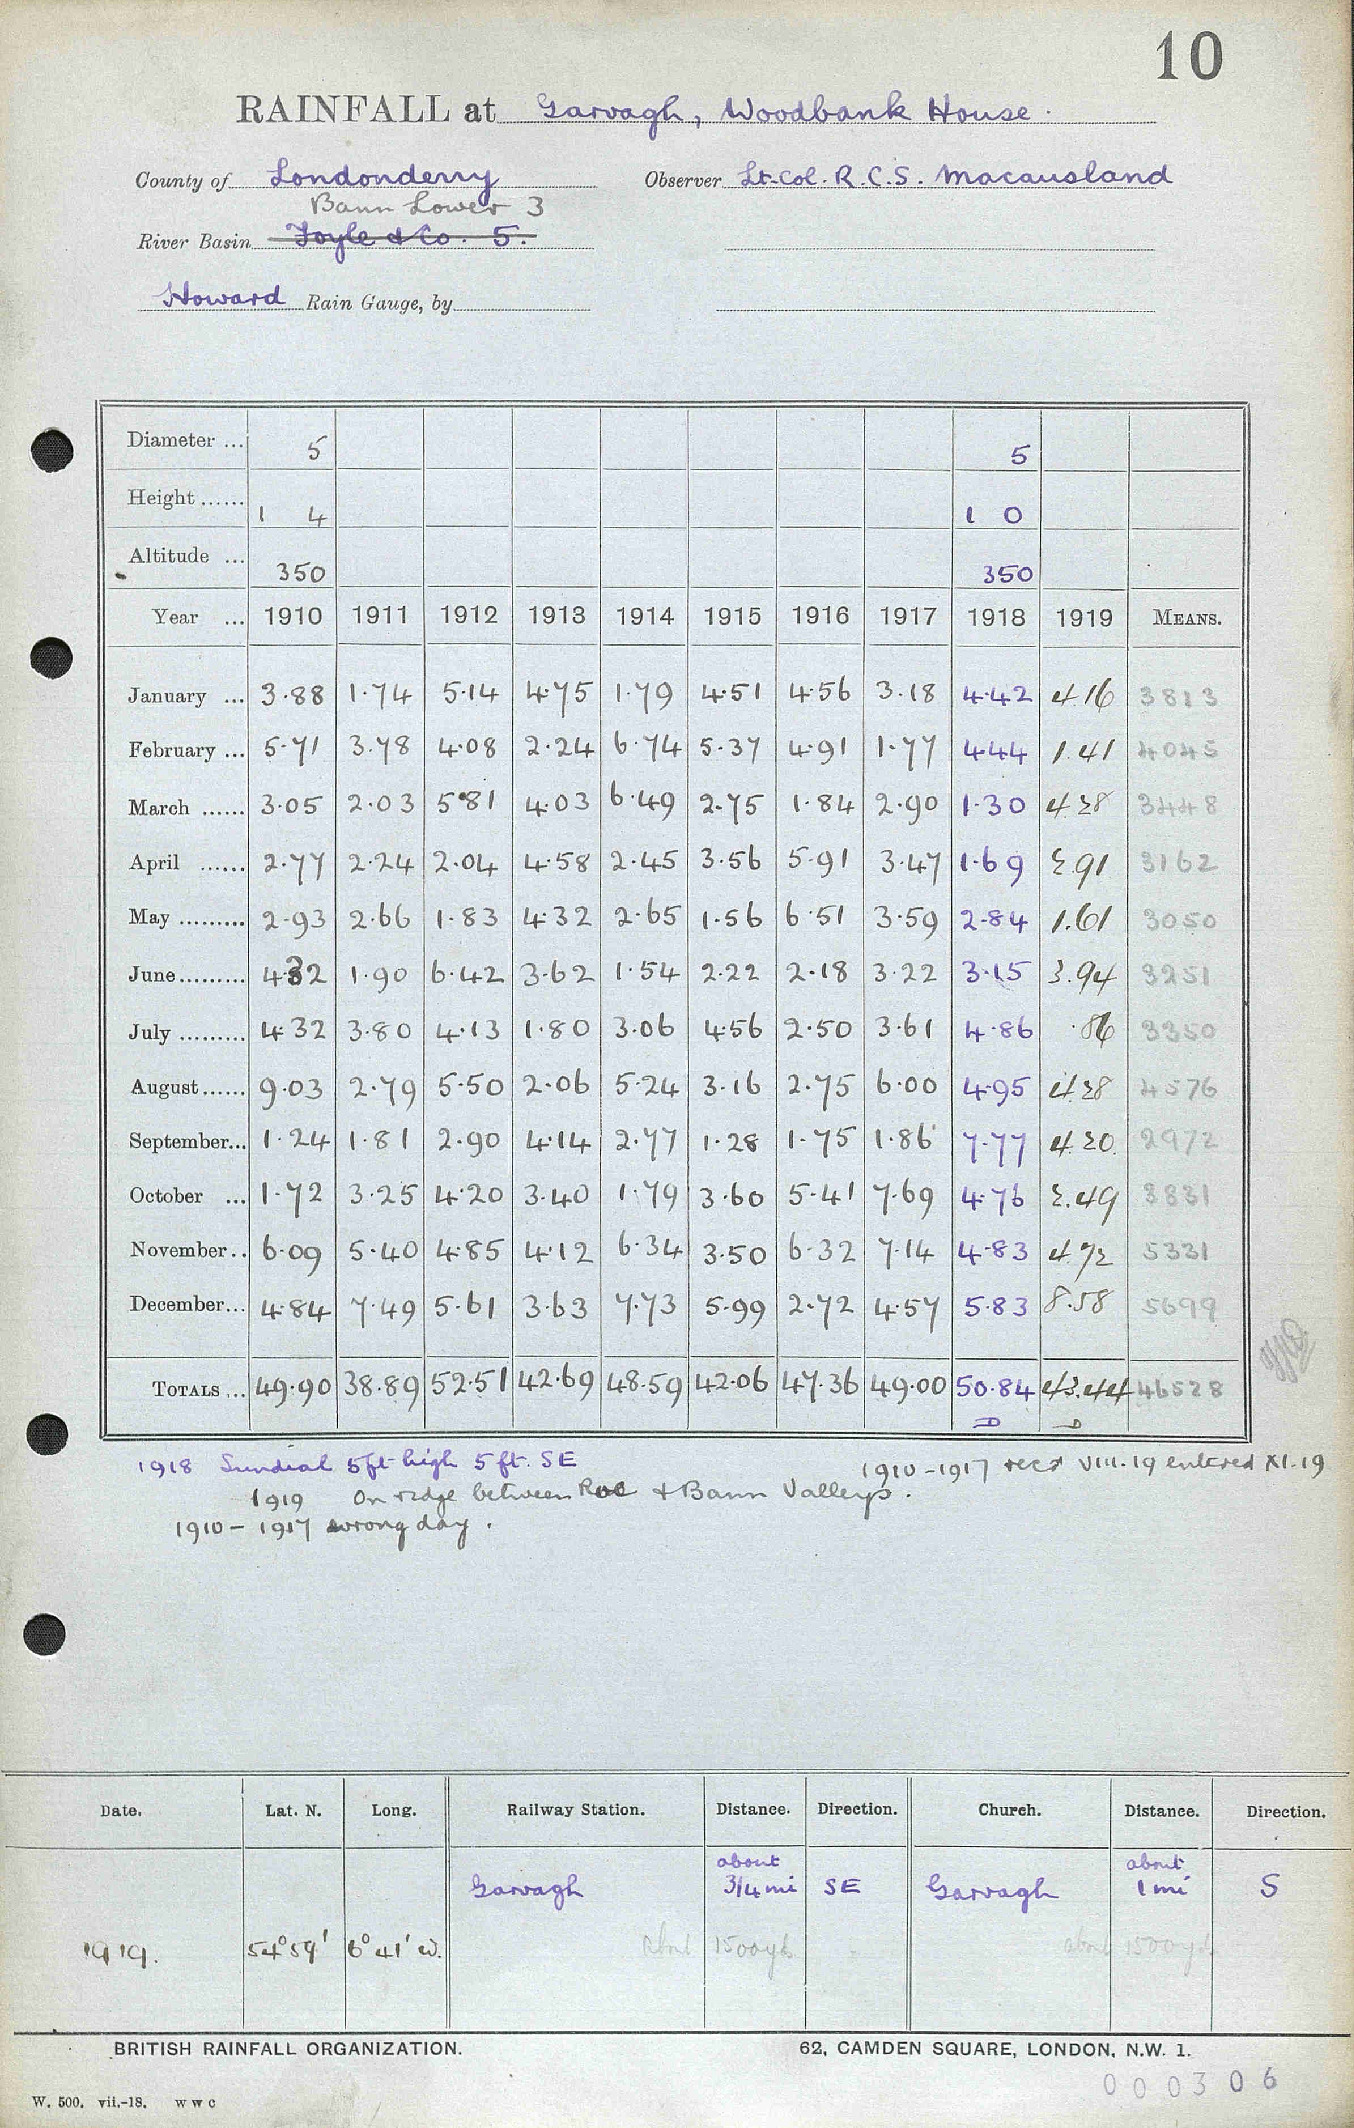 10
RAINFALL at Garvagh, Woodbank House.
County of Londonderry Observer Lt-Col. R.C.S. Macausland
Bann Lower 3
River Basin Foyle & Co. 5.
Howard Rain Gauge, by
Diameter ... 5 5
Height ...... 1 4 1 0
Altitude ... 350 350
Year ... 1910 1911 1912 1913 1914 1915 1916 1917 1918 1919 MEANS.
January ... 3.88 1.74 5.14 4.75 1.79 4.51 4.56 3.18 4.42 4.16 3813
February ... 5.71 3.78 4.08 2.24 6.74 5.37 4.91 1.77 4.44 1.41 4045
March ...... 3.05 2.03 5.81 4.03 6.49 2.75 1.84 2.90 1.30 4.28 3448
April ...... 2.77 2.24 2.04 4.58 2.45 3.56 5.91 3.47 1.69 2.91 3162
May ......... 2.93 2.66 1.83 4.32 2.65 1.56 6.51 3.59 2.84 1.61 3050
June ......... 4.32 1.90 6.42 3.62 1.54 2.22 2.18 3.22 3.15 3.94 3251
July ......... 4.32 3.80 4.13 1.80 3.06 4.56 2.50 3.61 4.86 .86 3350
August ...... 9.03 2.79 5.50 2.06 5.24 3.16 2.75 6.00 4.95 4.28 4576
September... 1.24 1.81 2.90 4.14 2.77 1.28 1.75 1.86 7.77 4.20 2972
October ... 1.72 3.25 4.20 3.40 1.79 3.60 5.41 7.69 4.76 2.49 3831
November .. 6.09 5.40 4.85 4.12 6.34 3.50 6.32 7.14 4.83 4.72 5331
December... 4.84 7.49 5.61 3.63 7.73 5.99 2.72 4.57 5.83 8.58 5699
TOTALS ... 49.90 38.89 52.51 42.69 48.59 42.06 47.36 49.00 50.84 43.44 46528
D D
1918 Sundial 5ft high 5 ft. SE
1910-1917 recd VIII.19 entered XI.19
1919 On ridge between Roe & Bann Valleys.
1910-1917 wrong day.
Date. Lat. N. Long. Railway Station. Distance. Direction. Church. Distance. Direction.
Garvagh about 3/4 mi SE Garvagh about 1 mi S
1919. 54° 59' 6° 41' W. about 1500 yds about 1500 yds
BRITISH RAINFALL ORGANIZATION. 62, CAMDEN SQUARE, LONDON, N.W. 1.
000306
W. 500. vii.-18. W W C